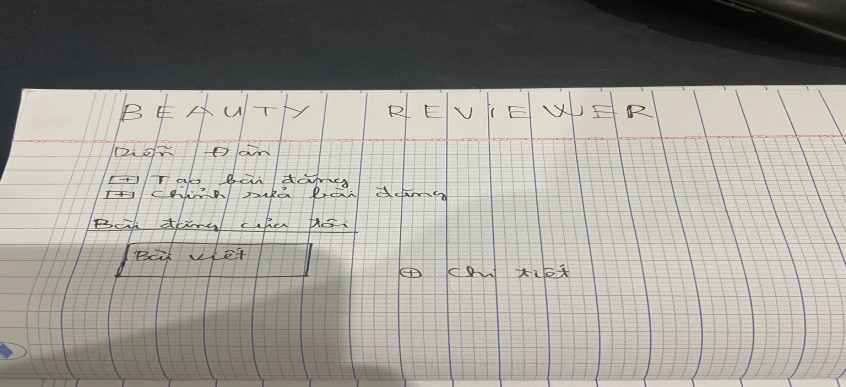 BEAUTY REVIEWER
Diễn Đàn
[+] Tạo bài đăng
[+] Chỉnh sửa bài đăng
Bài đăng của tôi
Bài viết
⊕ Chi tiết